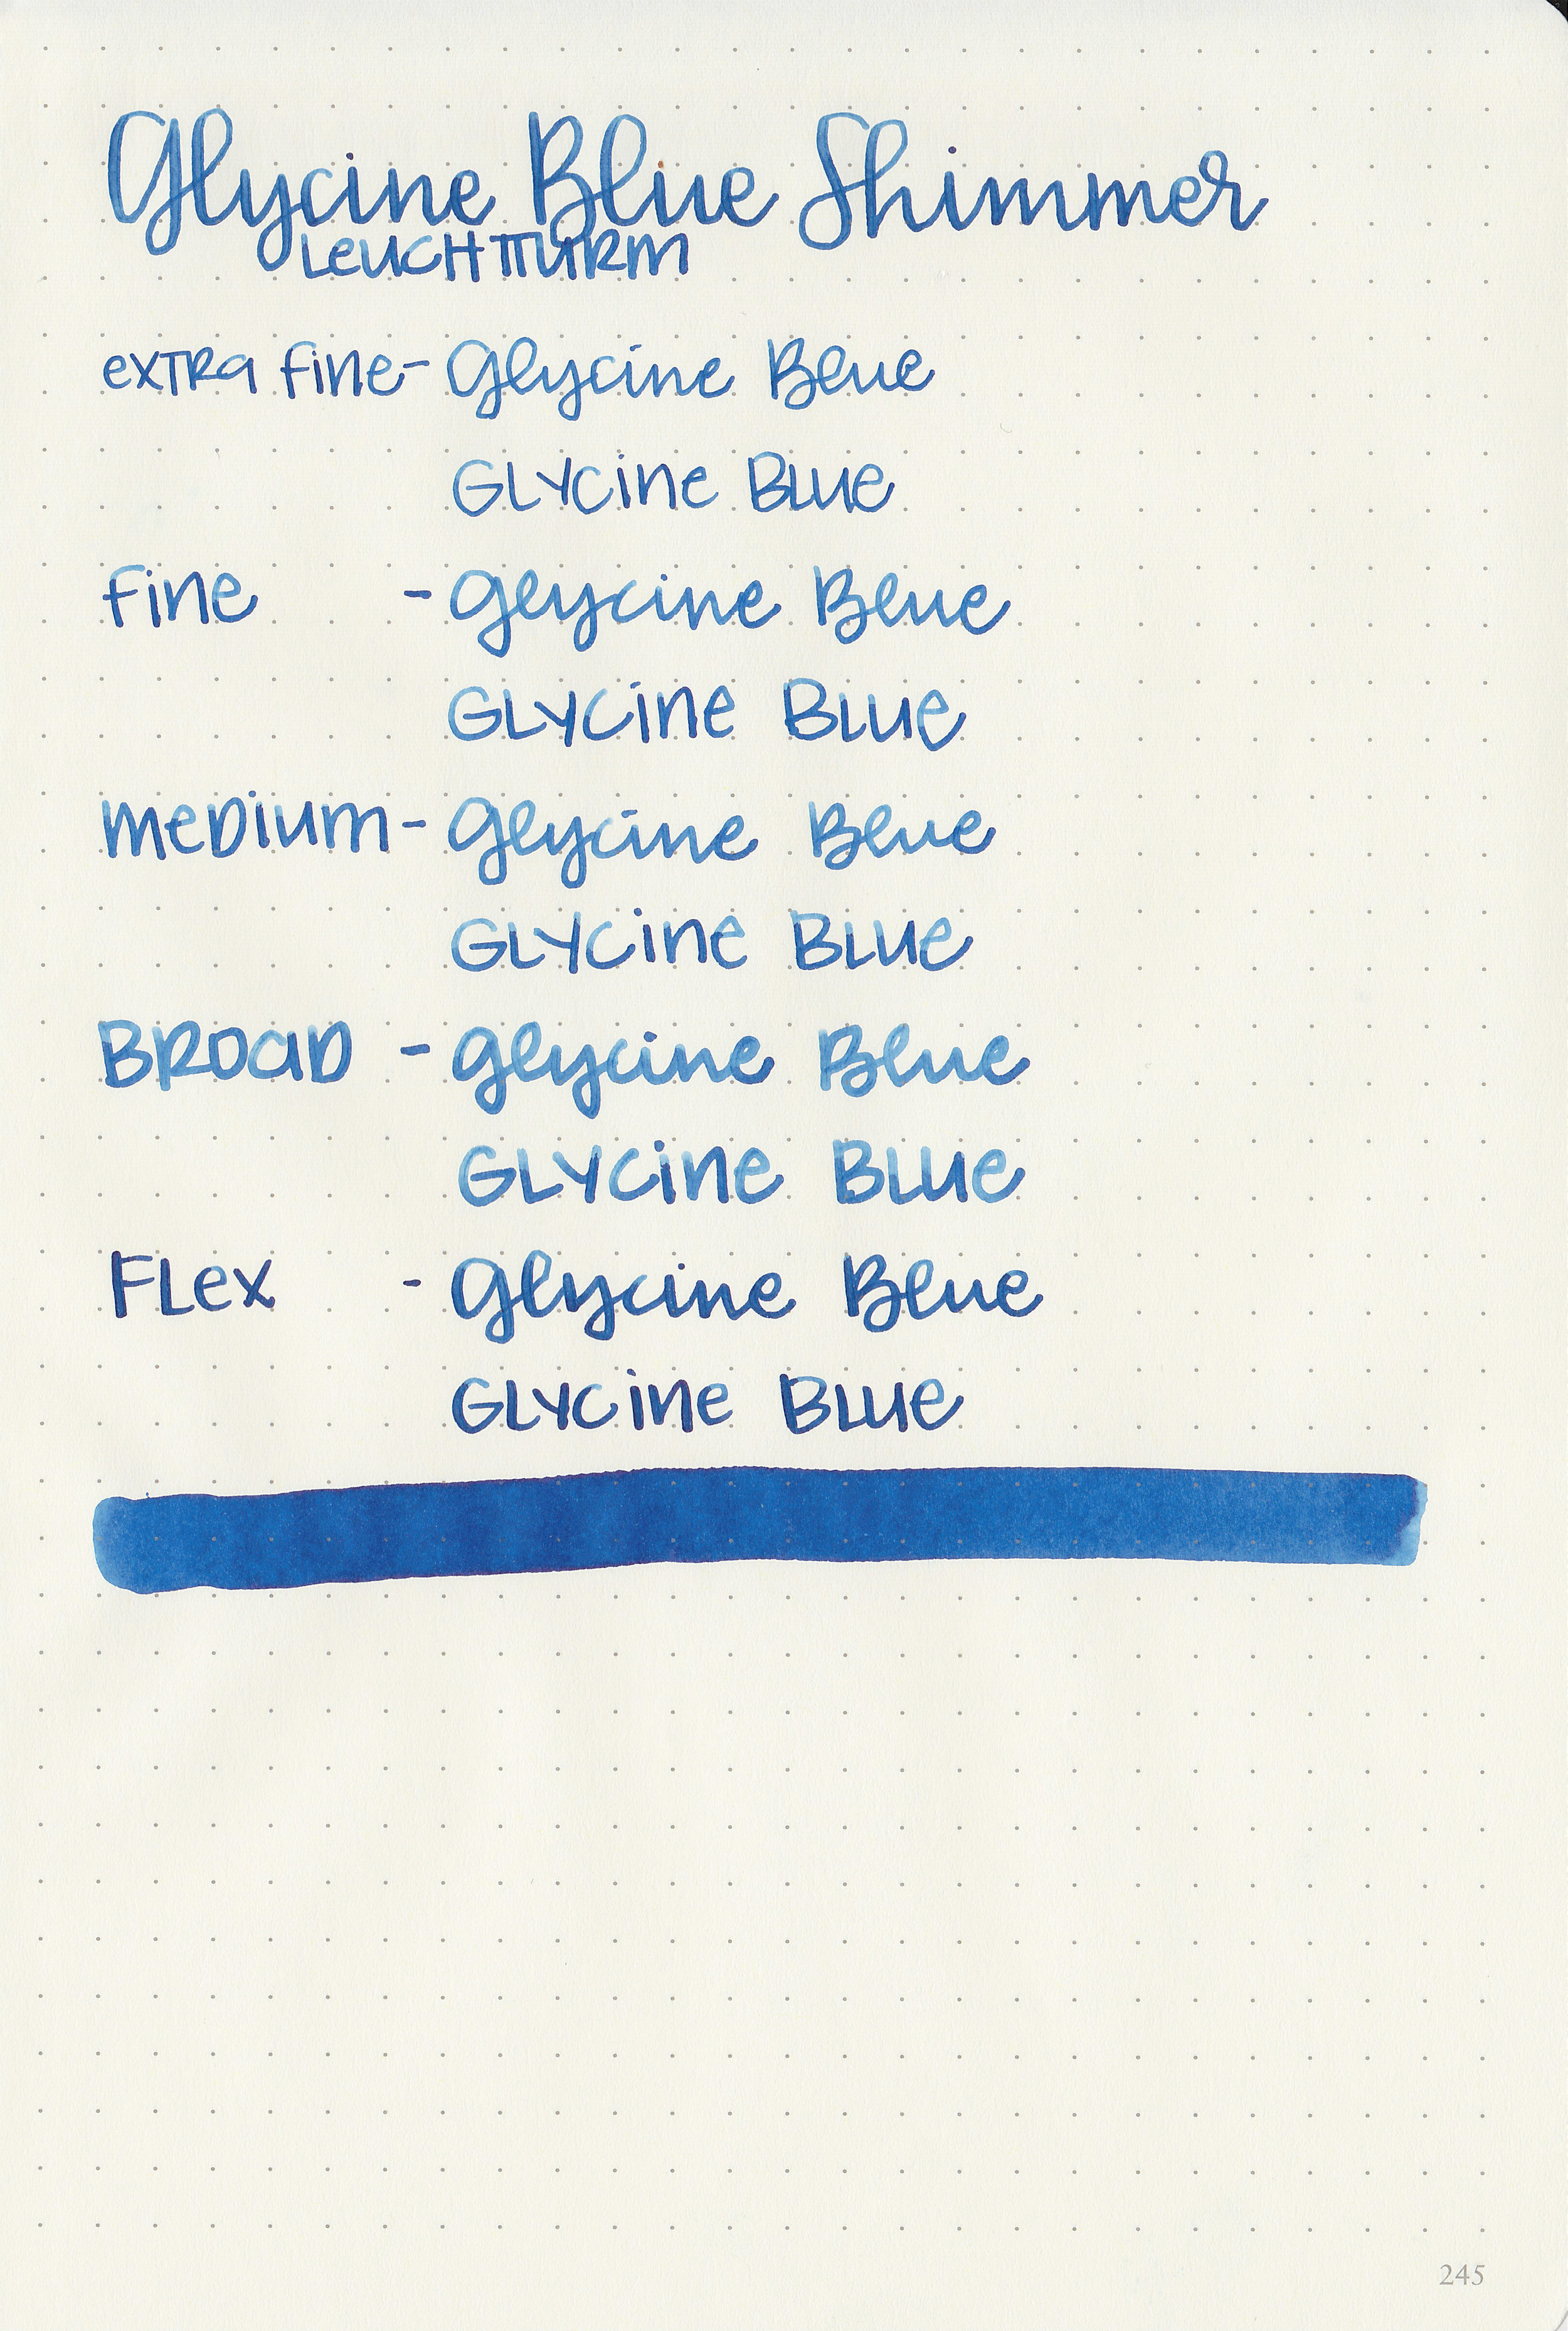 Glycine Blue Shimmer
LeUCHTTURM
exTRa fine - Glycine Blue
GLYCine BLUe
fine - Glycine Blue
GLYCine BLUe
meDium - Glycine Blue
GLYCine BLUe
BROaD - Glycine Blue
GLYCine BLUe
FLex - Glycine Blue
GLYCine BLUe
245